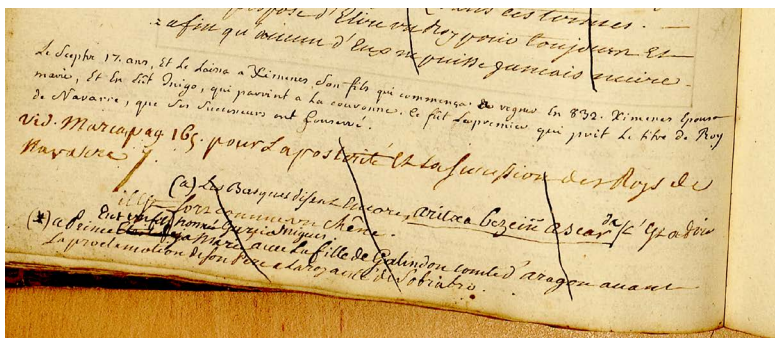 propose d'Elire un Roy dans ces termes. —
afin qu'aucun d'Eux ne puisse jamais nuire.
Le Sceptre 17. ans, Et le laissa a Ximenes Son fils qui commença de regner En 832. Ximenes Epousa
marie, Et En Eût Inigo, qui parvint a La couronne. Ce fût Le premier qui prit Le titre de Roy
de Navarre, que Ses Successeurs ont Conservé.
vid. Marca pag 165. pour La postérité Et La Succession des Roys de
Navarre
(a) Les Basques disent Encore, aritza bezein ascar /C'Est a dire
fort comme un chêne.
Eut un fils nommé Garzia
(*) a Peine maria avec La fille de Galindon comte d'aragon avant
La proclamation de Son Pere a La royauté de Sobrarbo.